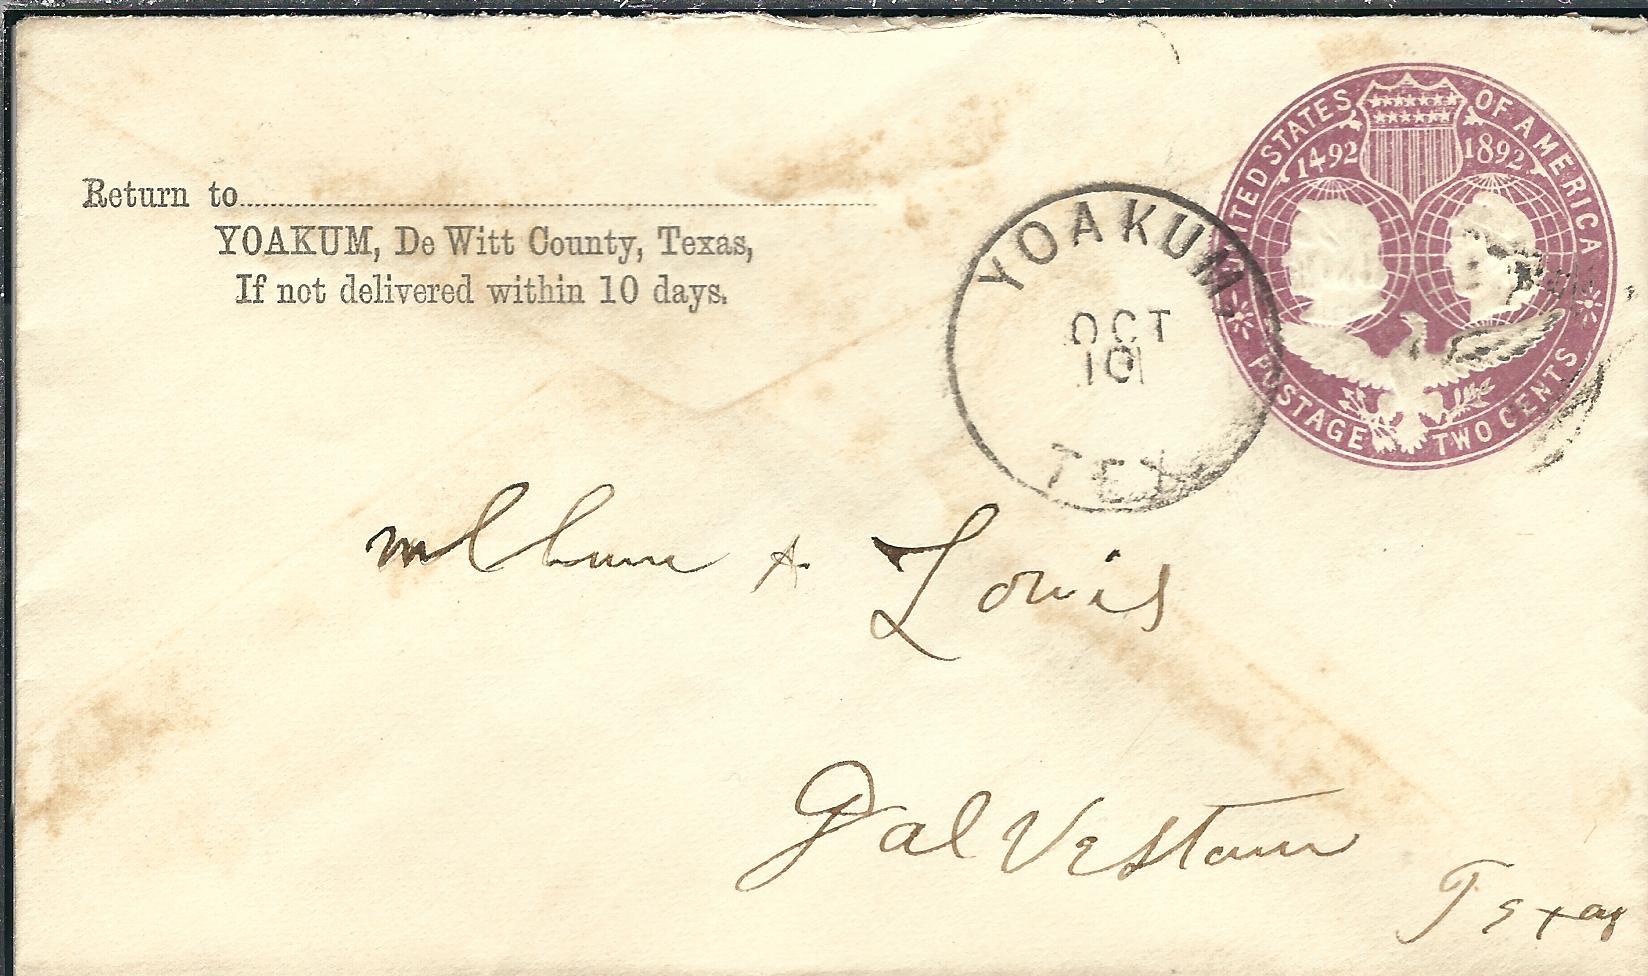 UNITED STATES OF AMERICA
1492 1892
POSTAGE TWO CENTS
Return to
YOAKUM, De Witt County, Texas,
If not delivered within 10 days.
YOAKUM,
OCT
10
TEX
A. Louis
GalVeston
Texas